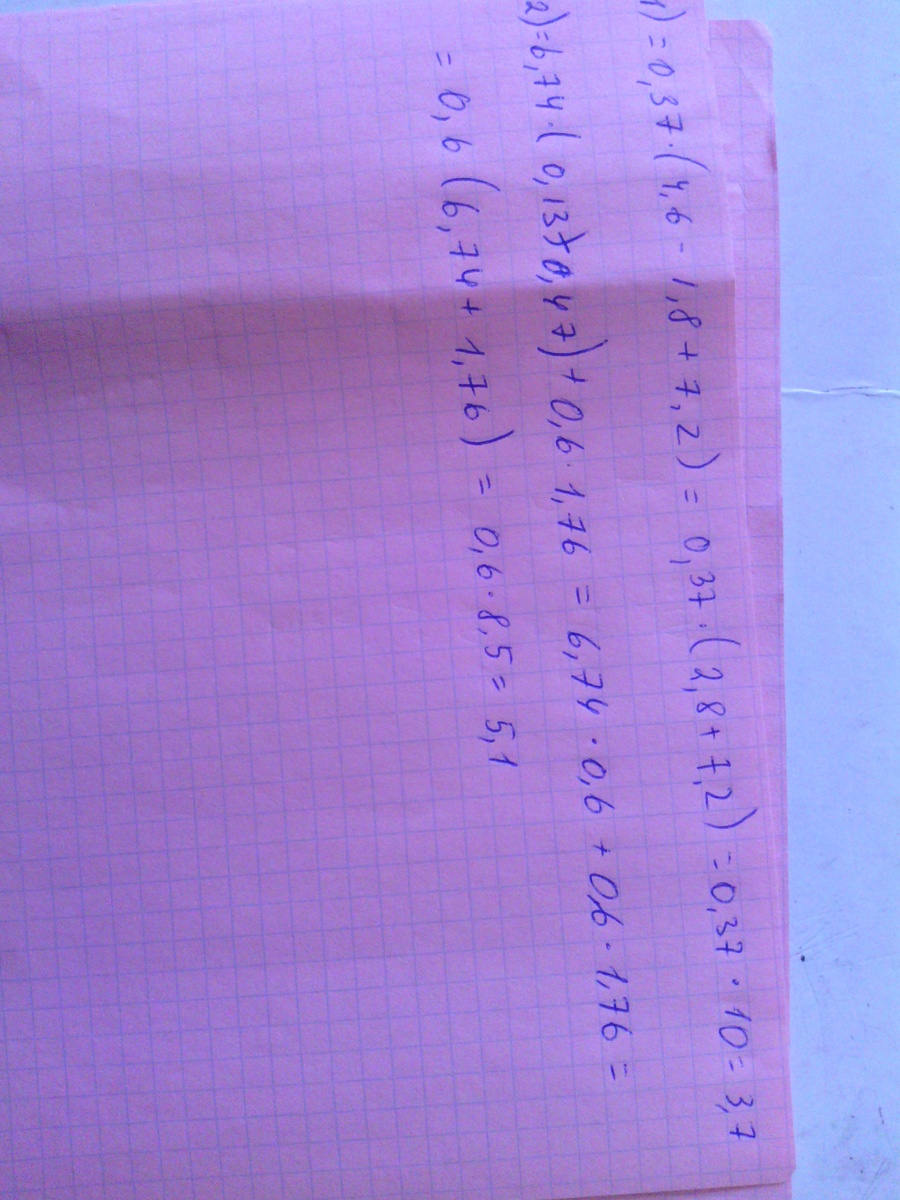 1) = 0,37·(4,6 - 1,8 + 7,2) = 0,37·(2,8 + 7,2) = 0,37 · 10 = 3,7
2) = 6,74·(0,13+0,47) + 0,6·1,76 = 6,74 · 0,6 + 0,6 · 1,76 =
= 0,6 (6,74 + 1,76) = 0,6·8,5 = 5,1